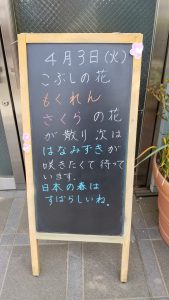 4月3日(火)
こぶしの花
もくれん
さくらの花
が散り次は
はなみずきが
咲きたくて待って
います。
日本の春は
すばらしいわ。